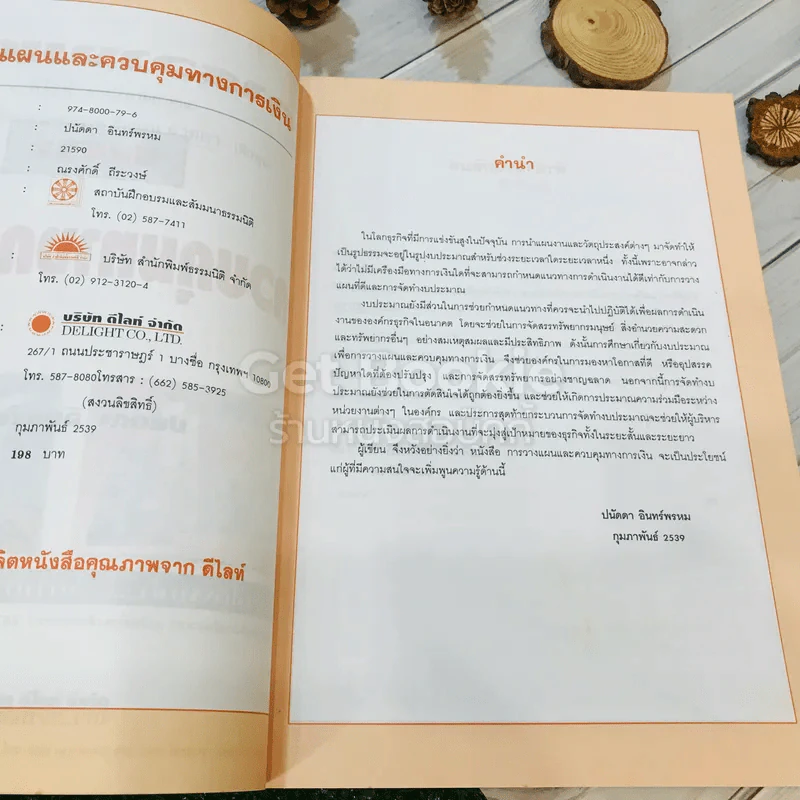 แผนและควบคุมทางการเงิน
: 974-8000-79-6
: ปนัดดา อินทร์พรหม
: 21590
: ณรงศักดิ์ ถีระวงษ์
: สถาบันฝึกอบรมและสัมมนาธรรมนิติ
โทร. (02) 587-7411
: บริษัท สำนักพิมพ์ธรรมนิติ จำกัด
โทร. (02) 912-3120-4
: บริษัท ดีไลท์ จำกัด
DELIGHT CO., LTD.
267/1 ถนนประชาราษฎร์ 1 บางซื่อ กรุงเทพฯ 10800
โทร. 587-8080โทรสาร : (662) 585-3925
(สงวนลิขสิทธิ์)
กุมภาพันธ์ 2539
198 บาท
ลิตหนังสือคุณภาพจาก ดีไลท์
คำนำ
ในโลกธุรกิจที่มีการแข่งขันสูงในปัจจุบัน การนำแผนงานและวัตถุประสงค์ต่างๆ มาจัดทำให้
เป็นรูปธรรมจะอยู่ในรูปงบประมาณสำหรับช่วงระยะเวลาใดระยะเวลาหนึ่ง ทั้งนี้เพราะอาจกล่าว
ได้ว่าไม่มีเครื่องมือทางการเงินใดที่จะสามารถกำหนดแนวทางการดำเนินงานได้ดีเท่ากับการวาง
แผนที่ดีและการจัดทำงบประมาณ
งบประมาณยังมีส่วนในการช่วยกำหนดแนวทางที่ควรจะนำไปปฏิบัติได้เพื่อผลการดำเนิน
งานขององค์กรธุรกิจในอนาคต โดยจะช่วยในการจัดสรรทรัพยากรมนุษย์ สิ่งอำนวยความสะดวก
และทรัพยากรอื่นๆ อย่างสมเหตุสมผลและมีประสิทธิภาพ ดังนั้นการศึกษาเกี่ยวกับงบประมาณ
เพื่อการวางแผนและควบคุมทางการเงิน จึงช่วยองค์กรในการมองหาโอกาสที่ดี หรืออุปสรรค
ปัญหาใดที่ต้องปรับปรุง และการจัดสรรทรัพยากรอย่างชาญฉลาด นอกจากนี้การจัดทำงบ
ประมาณยังช่วยในการตัดสินใจได้ถูกต้องยิ่งขึ้น และช่วยให้เกิดการประมาณความร่วมมือระหว่าง
หน่วยงานต่างๆ ในองค์กร และประการสุดท้ายกระบวนการจัดทำงบประมาณจะช่วยให้ผู้บริหาร
สามารถประเมินผลการดำเนินงานที่จะมุ่งสู่เป้าหมายของธุรกิจทั้งในระยะสั้นและระยะยาว
ผู้เขียน จึงหวังอย่างยิ่งว่า หนังสือ การวางแผนและควบคุมทางการเงิน จะเป็นประโยชน์
แก่ผู้ที่มีความสนใจจะเพิ่มพูนความรู้ด้านนี้
ปนัดดา อินทร์พรหม
กุมภาพันธ์ 2539